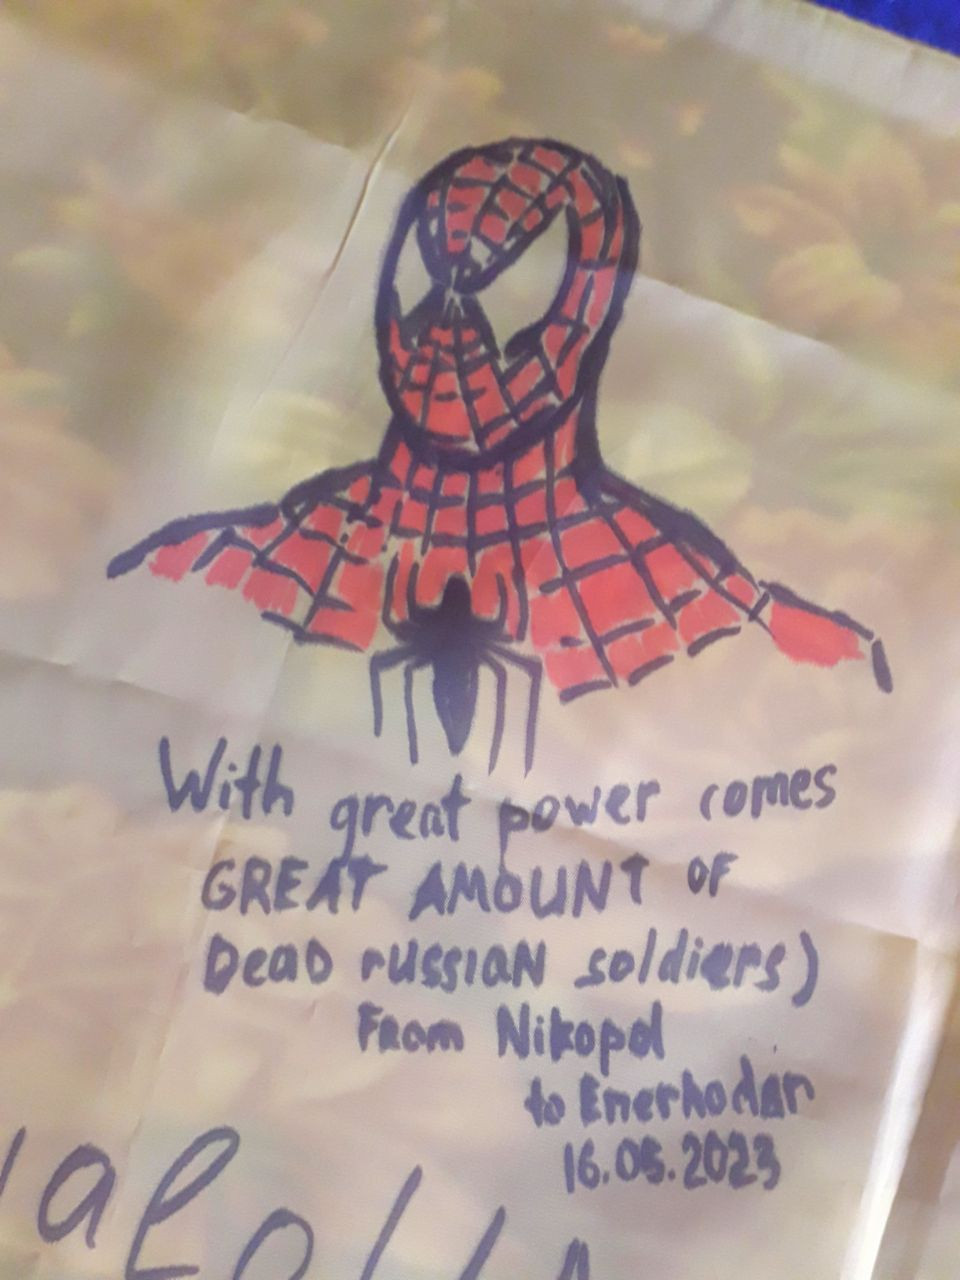 With great power comes
GREAT AMOUNT OF
Dead russian soldiers)
From Nikopol
to Enerhodar
16.05.2023